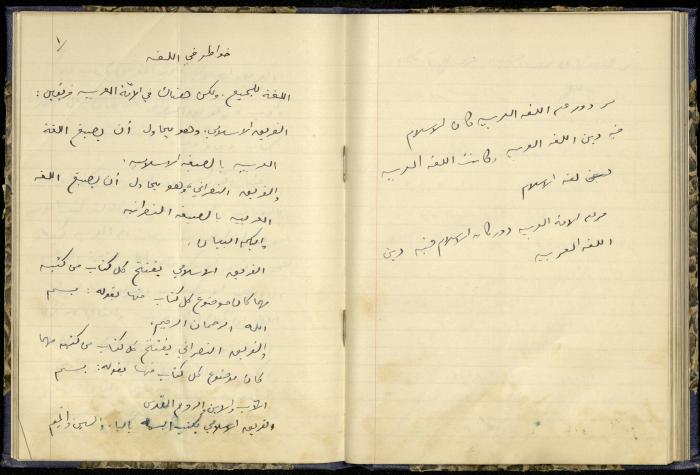 خواطر في اللغة
اللغة للجميع. ولكن هناك في الأمّة العربية فريقين:
الفريق الاسلامي، وهو يحاول أن يصبغ اللغة
العربية بالصبغة الاسلامية.
والفريق النصراني، وهو يحاول أن يصبغ اللغة
العربية بالصبغة النصرانية
وإليكم البيان.
الفريق الاسلامي يفتتح كل كتاب من كتبه
مهما كان موضوع كل كتاب منها بقوله: بسم
الله الرحمان الرحيم.
والفريق النصراني يفتتح كل كتاب من كتبه مهما
كان موضوع كل كتاب منها بقوله: بسم
الآب والابن والروح القدس
الفريق الاسلامي يكتب
دور اللغة العربية كان الاسلام
فيه دين اللغة العربية وكانت اللغة العربية
لغة الاسلام
الأمة العربية دور كان الاسلام فيه دين
اللغة العربية